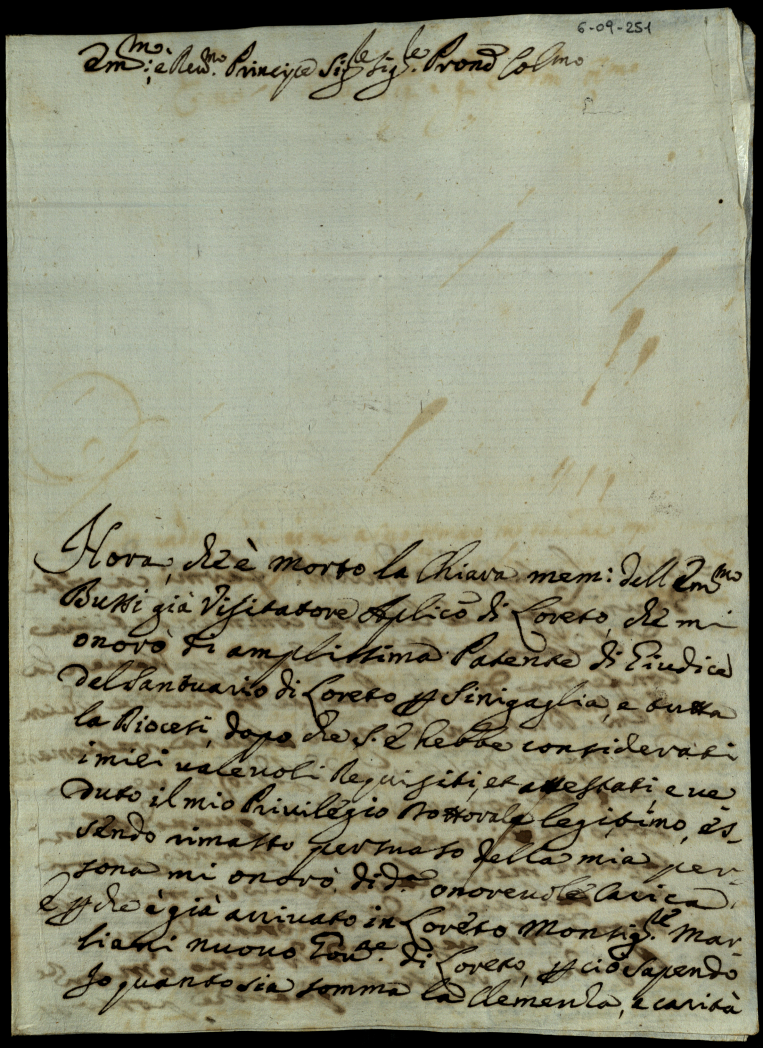 6-09-251
Em.mo: e Reu.mo Principe Sig.le Sig.le Pron Colmo
Hora, che è morto la Chiara mem: dell Em.mo
Bussi già Visitatore Aplico di Loreto, che mi
onorò di amplissima Patente di Giudice
del Santuario di Loreto p Sinigaglia, e tutta
la Diocesi, dopo che S. E hebbe considerati
i miei valevoli Requisiti, et attestati e ve
duto il mio Privilegio Dottorale legitimo, es-
sendo rimasto persuaso della mia per-
sona mi onorò di d.a onorevole Carica.
E p che è già arrivato in Loreto Monsig.re Mar
liani nuovo Gov.re di Loreto, p ciò sapendo
Io quanto sia somma la Clemenza, e carità